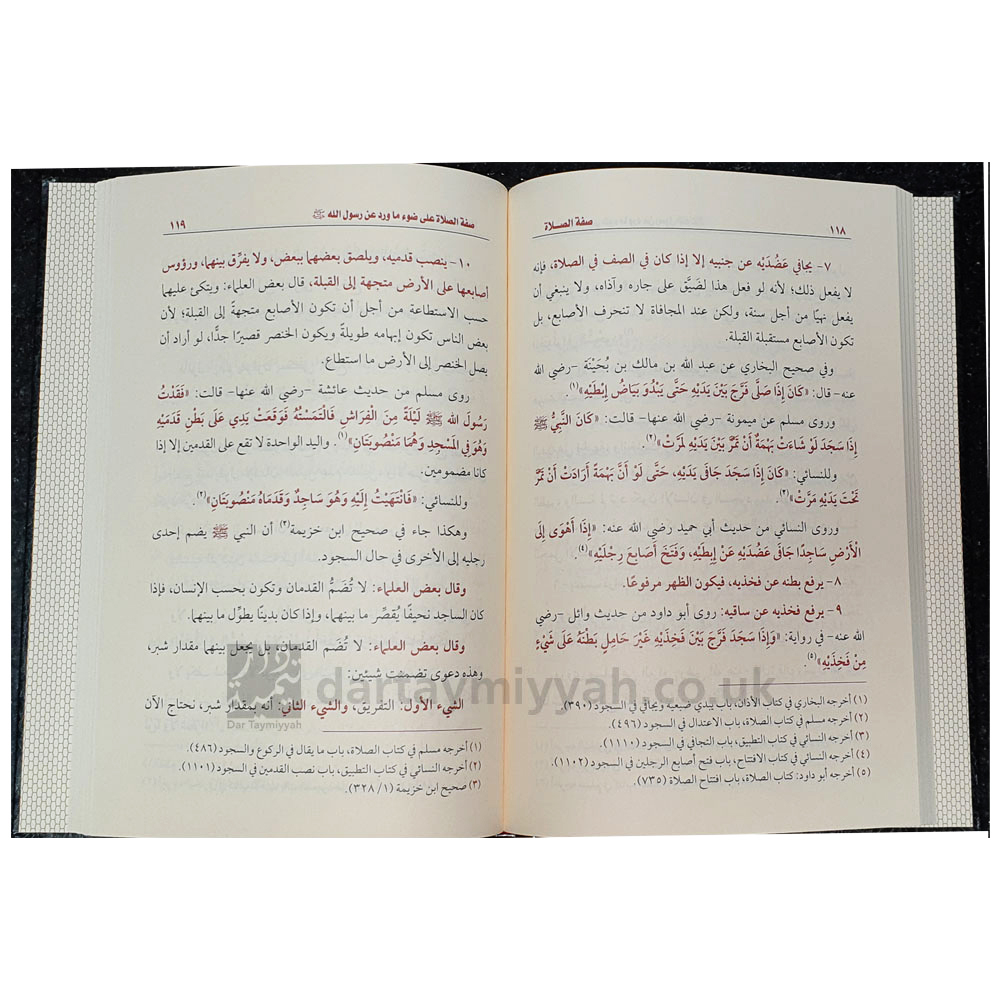 ١١٨
صفة الصـلاة
٧- يجافي عَضُدَيْه عن جنبيه إلا إذا كان في الصف في الصلاة، فإنه
لا يفعل ذلك؛ لأنه لو فعل هذا لضَيَّق على جاره وآذاه، ولا ينبغي أن
يفعل نهيًا من أجل سنة، ولكن عند المجافاة لا تنحرف الأصابع، بل
تكون الأصابع مستقبلة القبلة.
وفي صحيح البخاري عن عبد الله بن مالك بن بُحَيْنَة -رضي الله
عنه- قال: «كَانَ إِذَا صَلَّى فَرَّجَ بَيْنَ يَدَيْهِ حَتَّى يَبْدُوَ بَيَاضُ إِبِطَيْهِ»(١).
وروى مسلم عن ميمونة -رضي الله عنها- قالت: «كَانَ النَّبِيُّ ﷺ
إِذَا سَجَدَ لَوْ شَاءَتْ بَهْمَةٌ أَنْ تَمُرَّ بَيْنَ يَدَيْهِ لَمَرَّتْ»(٢).
وللنسائي: «كَانَ إِذَا سَجَدَ جَافَى يَدَيْهِ، حَتَّى لَوْ أَنَّ بَهْمَةً أَرَادَتْ أَنْ تَمُرَّ
تَحْتَ يَدَيْهِ مَرَّتْ»(٣).
وروى النسائي من حديث أبي حميد رضي الله عنه: «إِذَا أَهْوَى إِلَى
الْأَرْضِ سَاجِدًا جَافَى عَضُدَيْهِ عَنْ إِبِطَيْهِ، وَفَتَخَ أَصَابِعَ رِجْلَيْهِ»(٤).
٨- يرفع بطنه عن فخذيه، فيكون الظهر مرفوعًا.
٩- يرفع فخذيه عن ساقيه: روى أبو داود من حديث وائل -رضي
الله عنه- في رواية: «وَإِذَا سَجَدَ فَرَّجَ بَيْنَ فَخِذَيْهِ غَيْرَ حَامِلٍ بَطْنَهُ عَلَى شَيْءٍ
مِنْ فَخِذَيْهِ»(٥).
(١) أخرجه البخاري في كتاب الأذان، باب يبدي ضبعيه ويجافي في السجود (٣٩٠)
(٢) أخرجه مسلم في كتاب الصلاة، باب الاعتدال في السجود (٤٩٦)
(٣) أخرجه النسائي في كتاب التطبيق، باب التجافي في السجود (١١١٠)
(٤) أخرجه النسائي في كتاب الافتتاح، باب فتح أصابع الرجلين في السجود (١١٠٢)
(٥) أخرجه أبو داود: كتاب الصلاة، باب افتتاح الصلاة (٧٣٥)
صفة الصلاة على ضوء ما ورد عن رسول الله ﷺ
١١٩
١٠- ينصب قدميه، ويلصق بعضهما ببعض، ولا يفرِّق بينهما، ورؤوس
أصابعها على الأرض متجهة إلى القبلة، قال بعض العلماء: ويتكئ عليهما
حسب الاستطاعة من أجل أن تكون الأصابع متجهةً إلى القبلة؛ لأن
بعض الناس تكون إبهامه طويلةً ويكون الخنصر قصيرًا جدًّا، لو أراد أن
يصل الخنصر إلى الأرض ما استطاع.
روى مسلم من حديث عائشة -رضي الله عنها- قالت: «فَقَدْتُ
رَسُولَ الله ﷺ لَيْلَةً مِنَ الْفِرَاشِ فَالْتَمَسْتُهُ فَوَقَعَتْ يَدِي عَلَى بَطْنِ قَدَمَيْهِ
وَهُوَ فِي الْمَسْجِدِ وَهُمَا مَنْصُوبَتَانِ»(١). واليد الواحدة لا تقع على القدمين إلا إذا
كانا مضمومين.
وللنسائي: «فَانْتَهَيْتُ إِلَيْهِ وَهُوَ سَاجِدٌ وَقَدَمَاهُ مَنْصُوبَتَانِ»(٢).
وهكذا جاء في صحيح ابن خزيمة(٣) أن النبي ﷺ يضم إحدى
رجليه إلى الأخرى في حال السجود.
وقال بعض العلماء: لا تُضَمُّ القدمان وتكون بحسب الإنسان، فإذا
كان الساجد نحيفًا يُقصِّر ما بينهما، وإذا كان بدينًا يطوِّل ما بينهما.
وقال بعض العلماء: لا تُضم القدمان، بل يجعل بينهما مقدار شبر،
وهذه دعوى تضمنت شيئين:
الشيء الأول: التفريق، والشيء الثاني: أنه بمقدار شبر، نحتاج الآن
(١) أخرجه مسلم في كتاب الصلاة، باب ما يقال في الركوع والسجود (٤٨٦)
(٢) أخرجه النسائي في كتاب التطبيق، باب نصب القدمين في السجود (١١٠١)
(٣) صحيح ابن خزيمة (١/ ٣٢٨).
Dar Taymiyyah
dartaymiyyah.co.uk